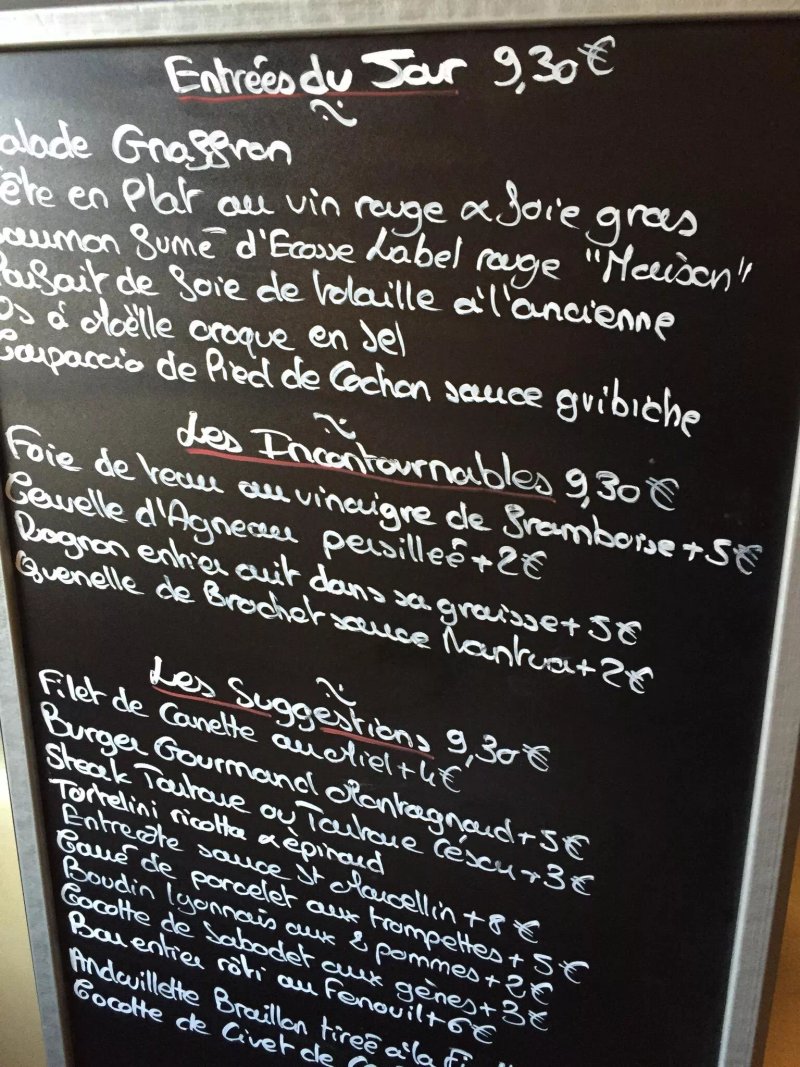 Entrées du Jour 9,30€
alade Gnaffron
ête en Plat au vin rouge & foie gras
aumon fumé d'Ecosse Label rouge "Maison"
Parfait de foie de Volaille à l'ancienne
Os à Moëlle croque en sel
Carpaccio de Pied de Cochon sauce gribiche
Les Incontournables 9,30€
Foie de veau au vinaigre de framboise +5€
Cervelle d'Agneau persilleé +2€
Rognon entier cuit dans sa graisse + 5€
Quenelle de Brochet sauce Nantua +2€
Les Suggestions 9,30€
Filet de Canette au Miel +4€
Burger Gourmand Montagnard +5€
Steak Tartare ou Tartare César +3€
Tortelini ricotta & épinard
Entrecôte sauce St Marcellin +8€
Carré de porcelet aux trompettes + 5€
Boudin lyonnais aux 2 pommes +2€
Cocotte de Sabodet aux gènes + 3€
Bar entier rôti au Fenouil +6€
Andouillette Braillon tireé à la Fi
Cocotte de Civet de